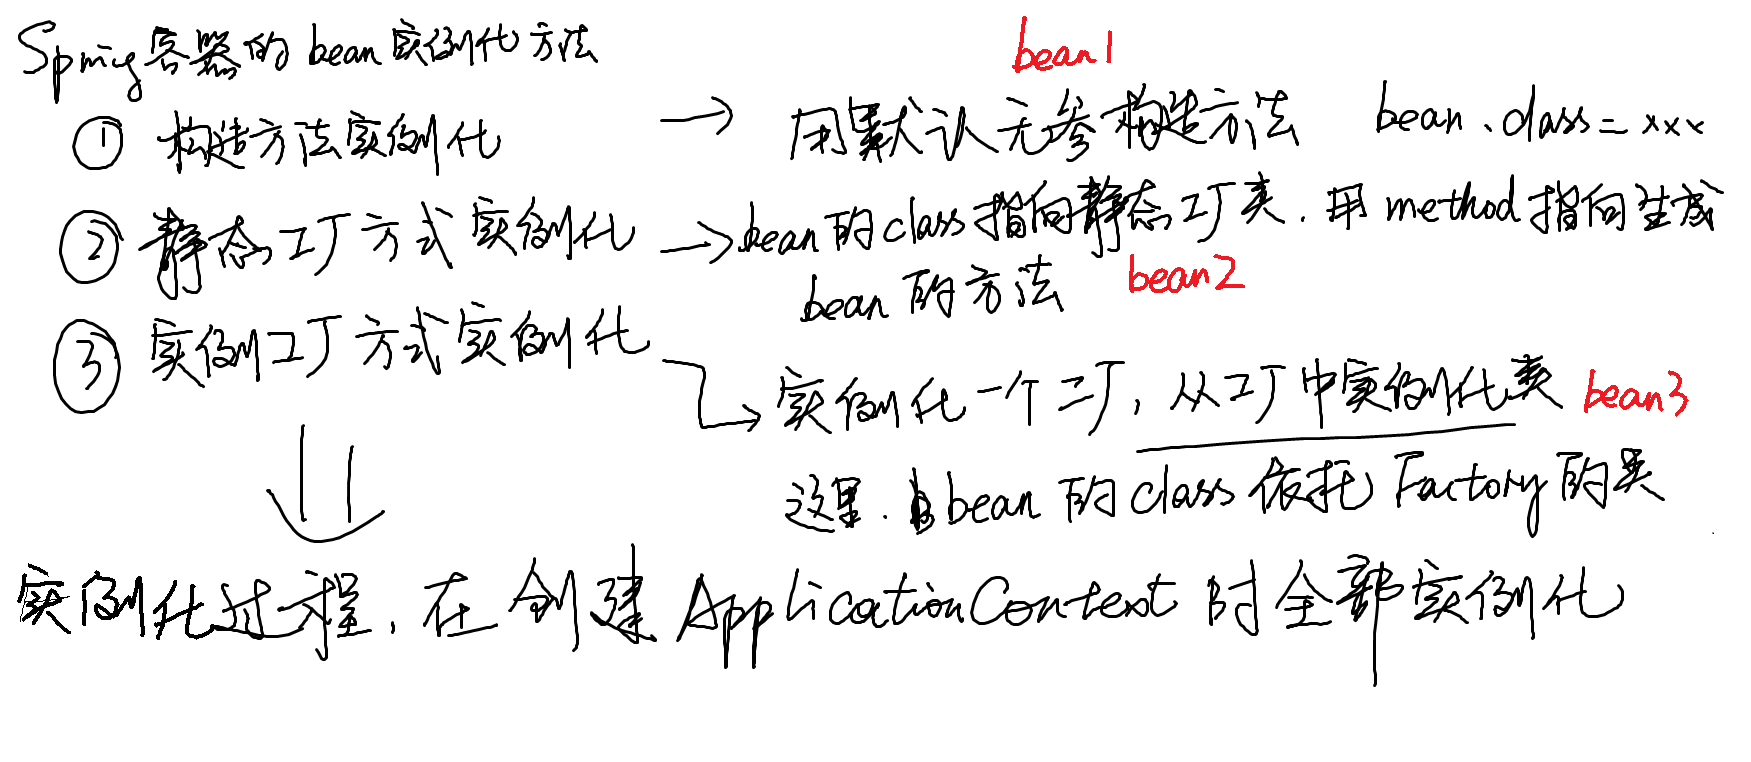 Spring容器的bean实例化方法
bean1
① 构造方法实例化 → 用默认无参构造方法 bean.class=xxx
② 静态工厂方式实例化 → bean的class指向静态工厂类.用method指向生成
bean的方法 bean2
③ 实例工厂方式实例化
实例化一个工厂,从工厂中实例化类 bean3
这里.bean的class依托Factory的类
实例化过程,在创建ApplicationContext时全部实例化